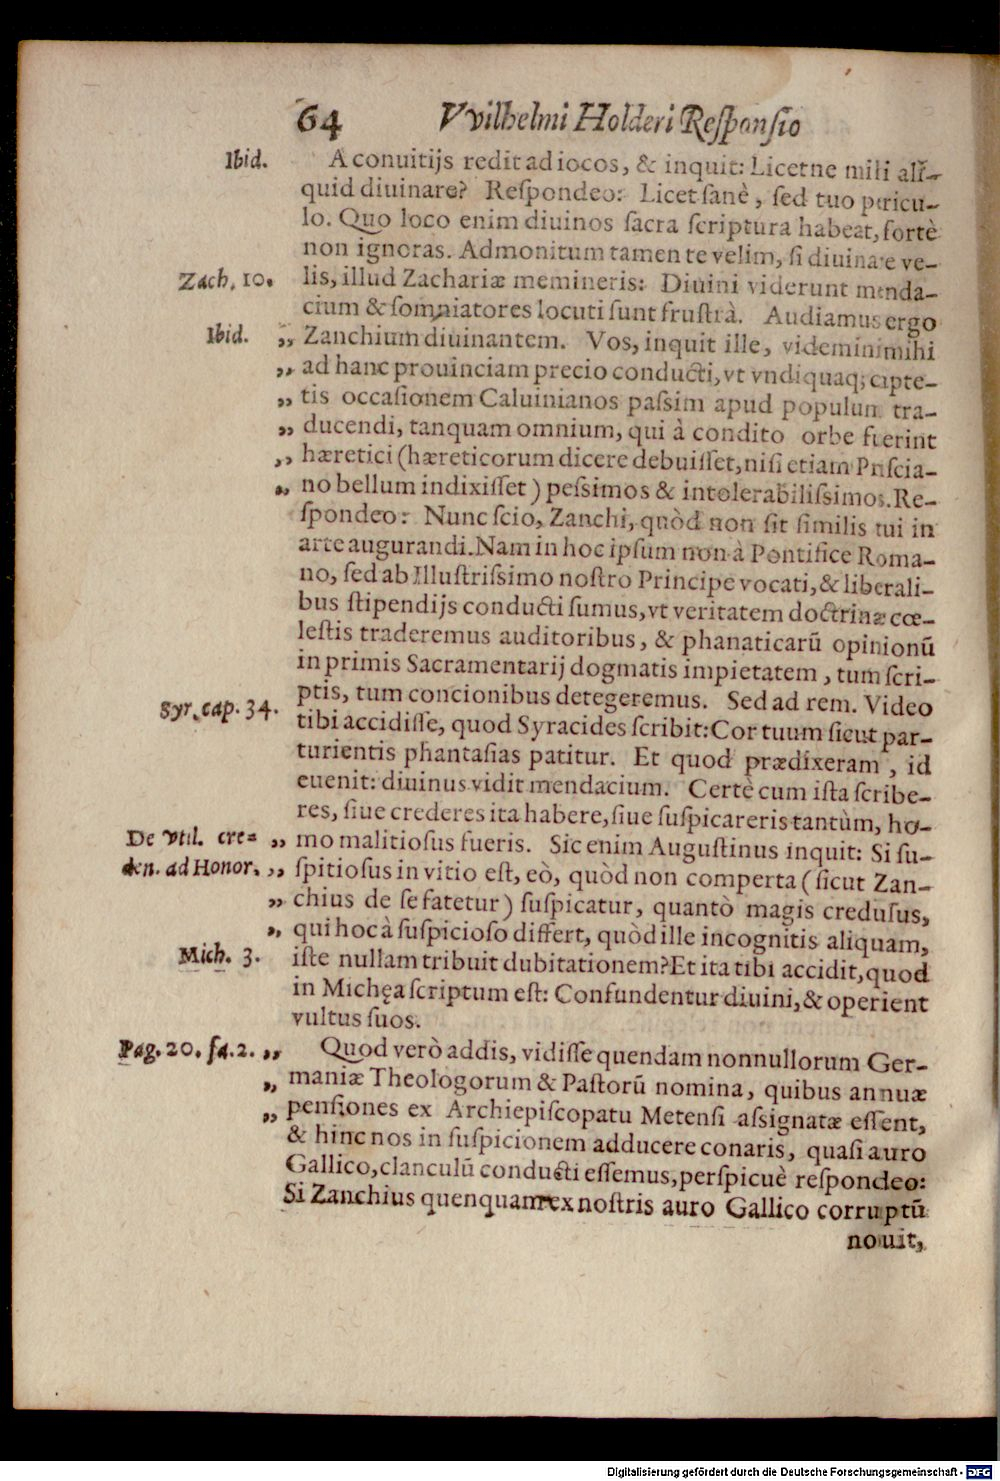 64 Vvilhelmi Holderi Reſponſio
Ibid. A conuitijs redit ad iocos, & inquit: Licetne mihi ali-
quid diuinare? Reſpondeo: Licet ſanè, ſed tuo pericu-
lo. Quo loco enim diuinos ſacra ſcriptura habeat, fortè
non ignoras. Admonitum tamen te velim, ſi diuinare ve-
Zach. 10. lis, illud Zachariæ memineris: Diuini viderunt menda-
cium & ſomniatores locuti ſunt fruſtrà. Audiamus ergo
Ibid. „ Zanchium diuinantem. Vos, inquit ille, videmini mihi
„ ad hanc prouinciam precio conducti, vt vndiquaq; capte-
„ tis occaſionem Caluinianos paſsim apud populum tra-
„ ducendi, tanquam omnium, qui à condito orbe fuerint
„ hæretici (hæreticorum dicere debuiſſet, niſi etiam Priſcia-
„ no bellum indixiſſet) peſsimos & intolerabiliſsimos. Re-
ſpondeo: Nunc ſcio, Zanchi, quòd non ſit ſimilis tui in
arte augurandi. Nam in hoc ipſum non à Pontifice Roma-
no, ſed ab Illuſtriſsimo noſtro Principe vocati, & liberali-
bus ſtipendijs conducti ſumus, vt veritatem doctrinæ cœ-
leſtis traderemus auditoribus, & phanaticarū opinionū
in primis Sacramentarij dogmatis impietatem, tum ſcri-
ptis, tum concionibus detegeremus. Sed ad rem. Video
Syr. cap. 34. tibi accidiſſe, quod Syracides ſcribit: Cor tuum ſicut par-
turientis phantaſias patitur. Et quod prædixeram, id
euenit: diuinus vidit mendacium. Certè cum iſta ſcribe-
res, ſiue crederes ita habere, ſiue ſuſpicareris tantùm, ho-
De vtil. cre= „ mo malitioſus fueris. Sic enim Auguſtinus inquit: Si ſu-
den. ad Honor. „ ſpitioſus in vitio eſt, eò, quòd non comperta (ſicut Zan-
„ chius de ſe fatetur) ſuſpicatur, quantò magis creduſus,
„ qui hoc à ſuſpicioſo differt, quòd ille incognitis aliquam,
Mich. 3. iſte nullam tribuit dubitationem? Et ita tibi accidit, quod
in Michęa ſcriptum eſt: Confundentur diuini, & operient
vultus ſuos.
Pag. 20. fa. 2. „ Quod verò addis, vidiſſe quendam nonnullorum Ger-
„ maniæ Theologorum & Paſtorū nomina, quibus annuæ
„ penſiones ex Archiepiſcopatu Metenſi aſsignatæ eſſent,
& hinc nos in ſuſpicionem adducere conaris, quaſi auro
Gallico, clanculū conducti eſſemus, perſpicuè reſpondeo:
Si Zanchius quenquam ex noſtris auro Gallico corruptū
nouit,
Digitalisierung gefördert durch die Deutsche Forschungsgemeinschaft - DFG